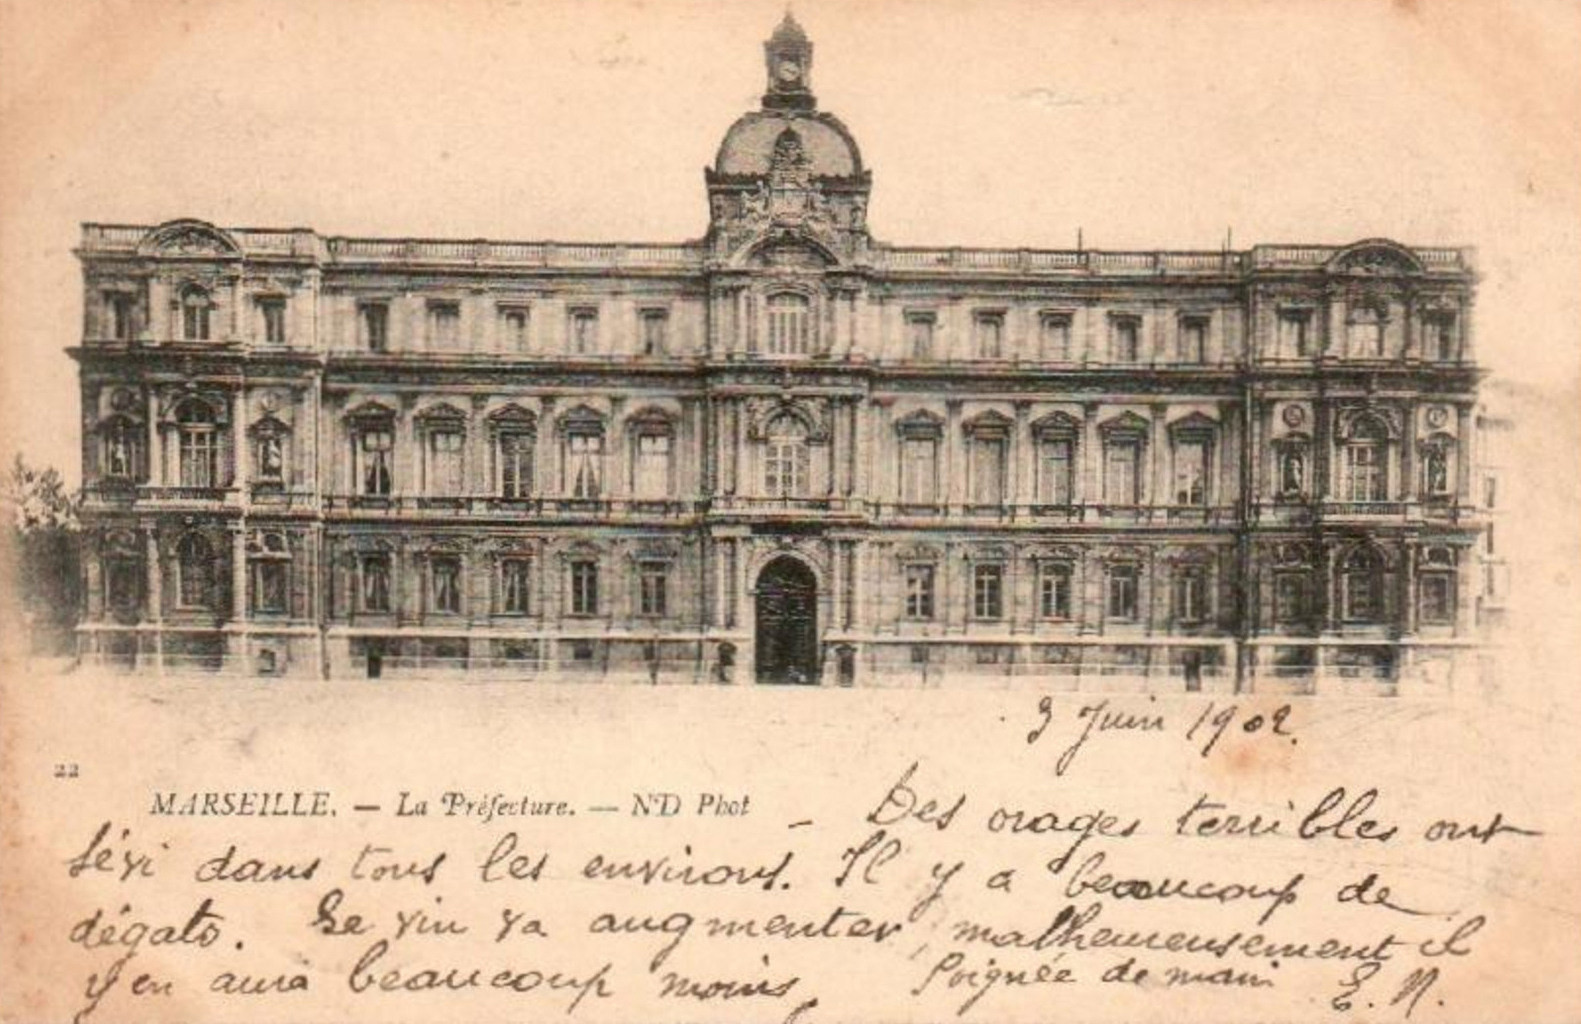 3 Juin 1902.
22
MARSEILLE. — La Préfecture. — ND Phot
— Des orages terribles ont
sévi dans tous les environs. Il y a beaucoup de
dégats. Le vin va augmenter, malheureusement il
y en aura beaucoup moins, Poignée de main E. N.